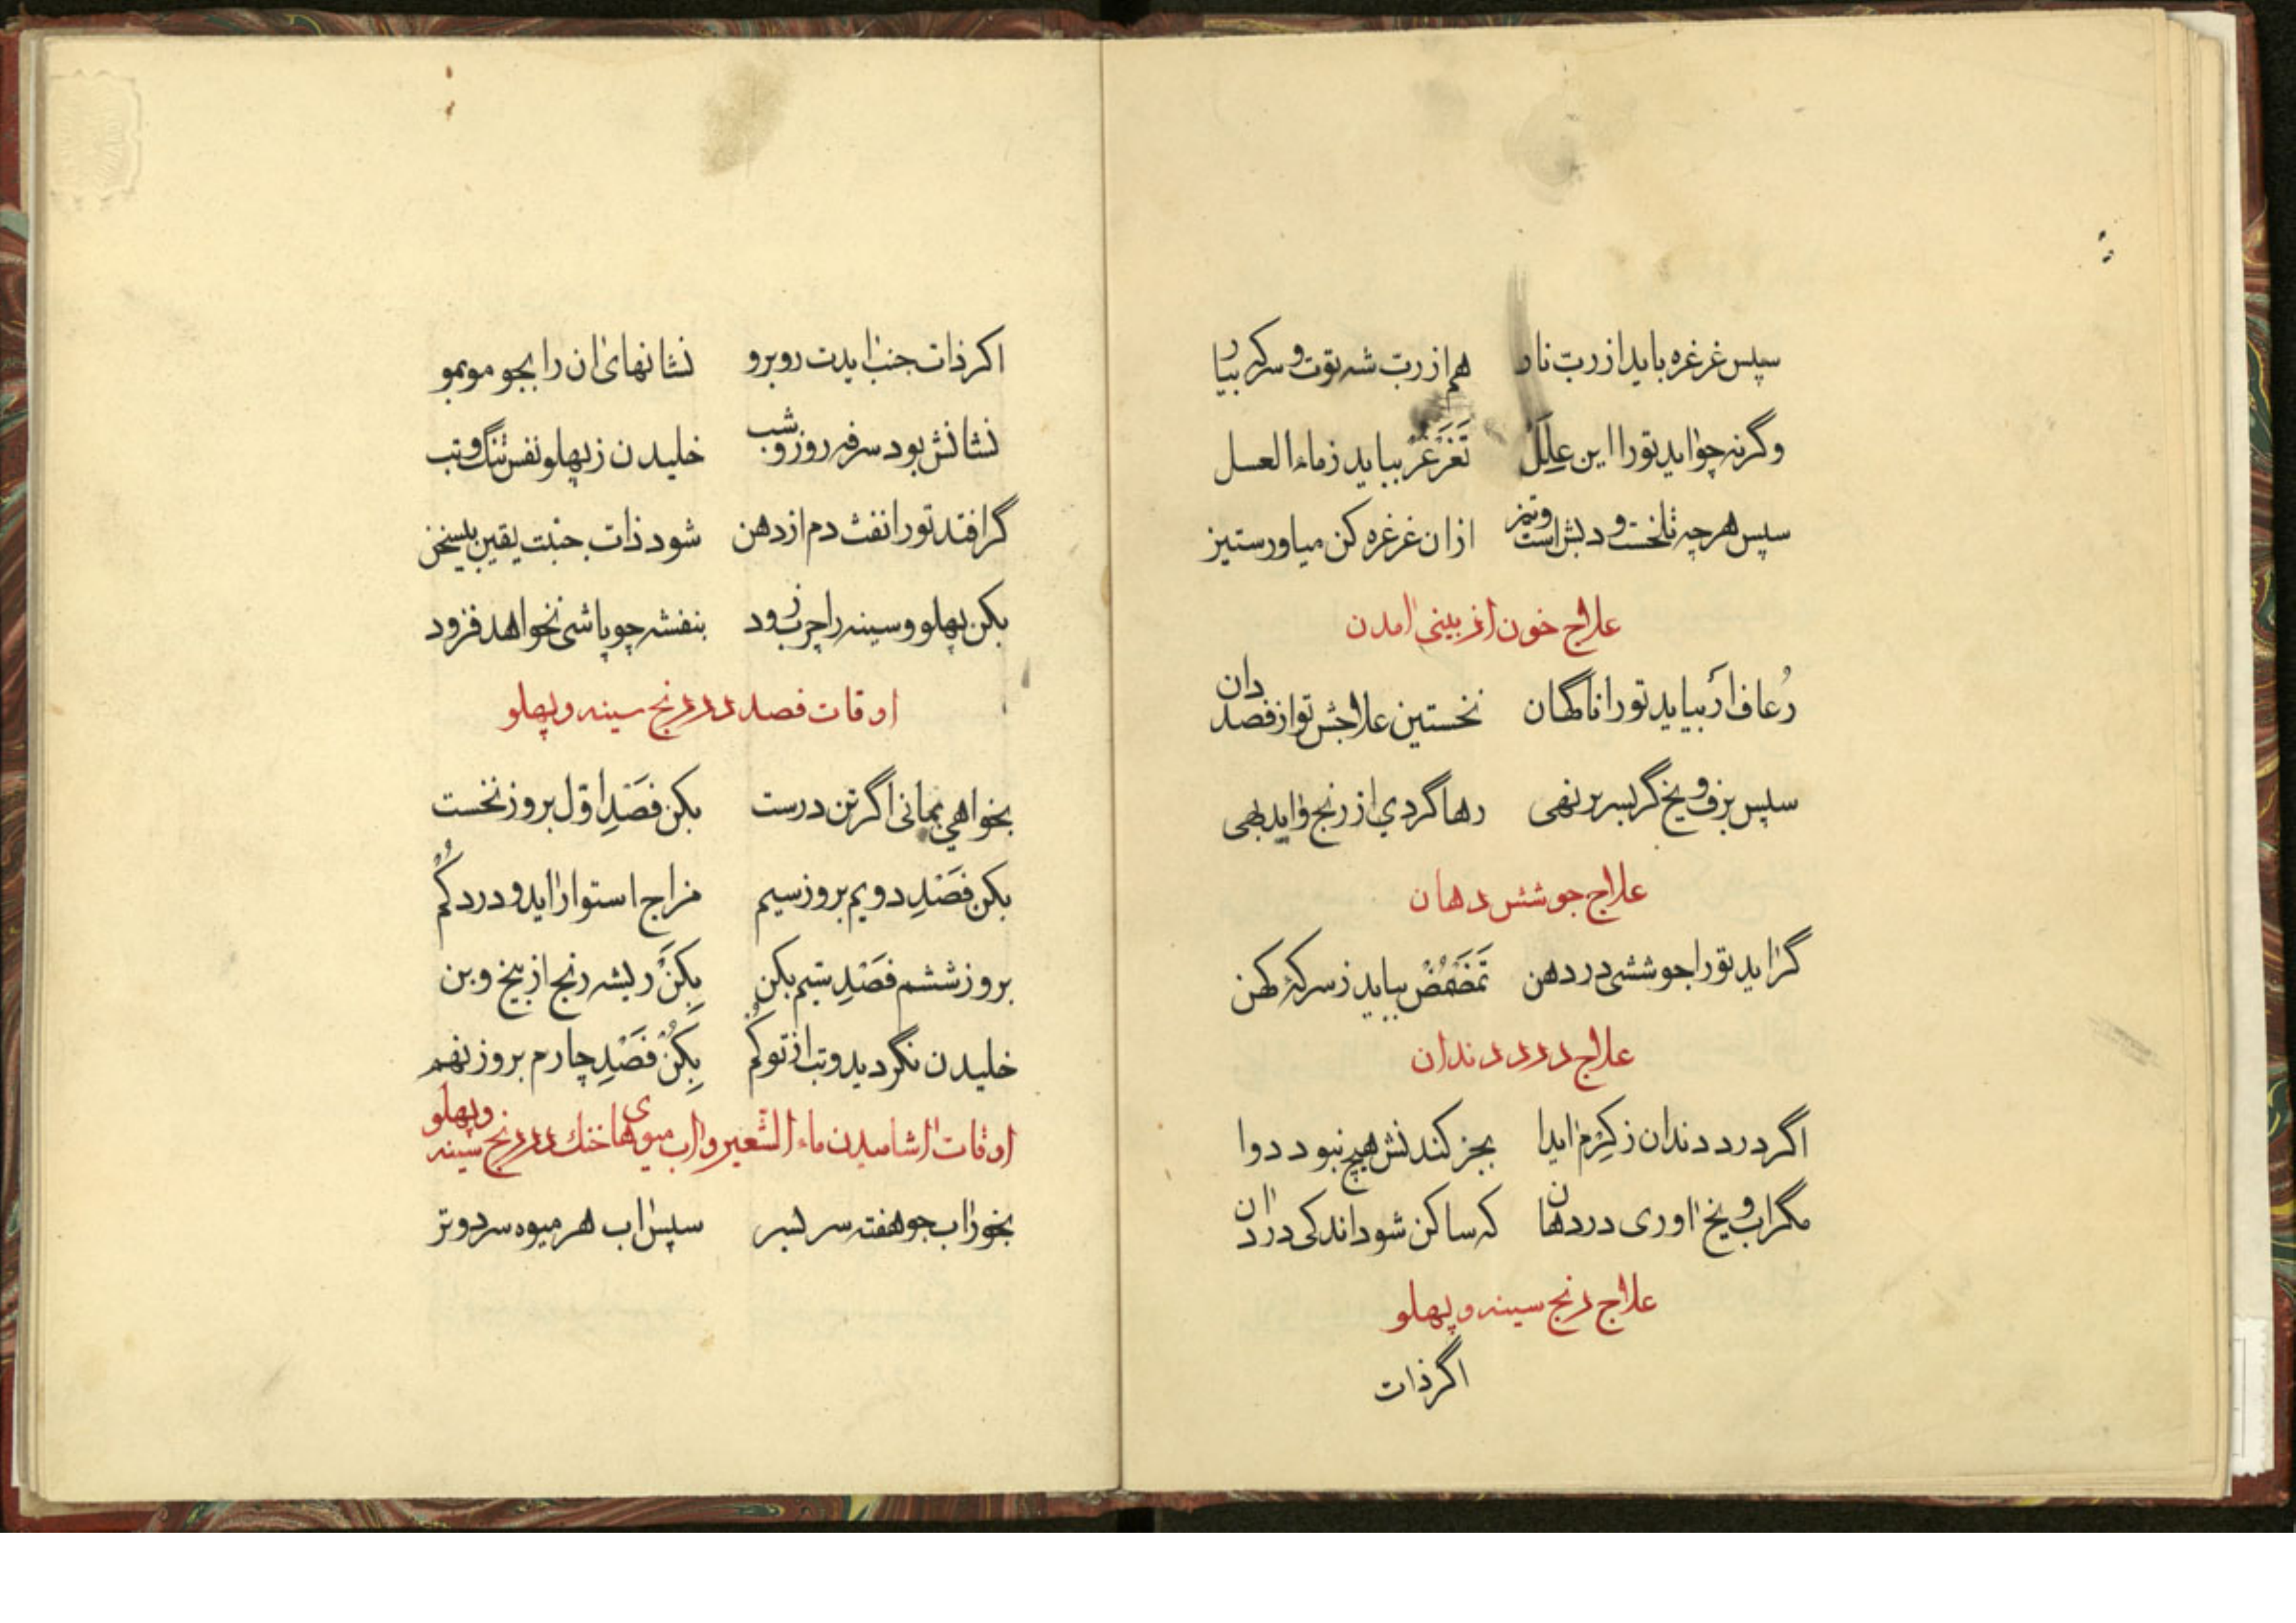 سپس غرغره باید از ربّ نار هم از ربّ شه توت و سرکه بیار
وگرنه چو اید تورا این عِلَل تَغَرغُر بباید ز ماء العسل
سپس هرچه تلخست و دبش است و تیز ازان غرغره کن میاور ستیز
علاج خون از بینی امدن
رُعاف ار بیاید تورا ناگهان نخستین علاجش تو از فصد دان
سپس برف و یخ گر بسر بر نهی رها گردی از رنج و اید بهی
علاج جوشش دهان
گر اید تورا جوششی در دهن تَمَضمُض بباید ز سرکهٔ کهن
علاج درد دندان
اگر درد دندان ز کِرم اید ا بجز کندنش هیچ نبود دوا
مگر اب و یخ اوری در دهان که ساکن شود اندکی درد ان
علاج رنج سینه و پهلو
اگر ذات
اکر ذات جنب ایدت روبرو نشانهای ان را بجو مو بمو
نشانش بود سرفه روز و شب خلیدن ز پهلو نفس تنگ و تب
گر افتد تورا نفث دم از دهن شود ذات جنبت یقین بیسخن
بکن پهلو و سینه را چرب زود بنفشه چو پاشی نخواهد فزود
اوقات فصد در رنج سینه و پهلو
بخواهی بمانی اگر تن درست بکن فَصْدِ اوّل بروز نخست
بکن فَصْدِ دویم بروز سیم مزاج استوار اید و درد کُم
بروز ششم فَصْدِ سیّم بکن بِکَن ریشه رنج از بیخ و بن
خلیدن نگردید و تب از تو کُم بِکُنْ فَصْدِ چارم بروز نهم
اوقات اشامیدن ماء الشّعیر و اب میوهای خنك در رنج سینه و پهلو
بخور اب جو هفته سر بسر سپس اب هر میوه سرد و تر